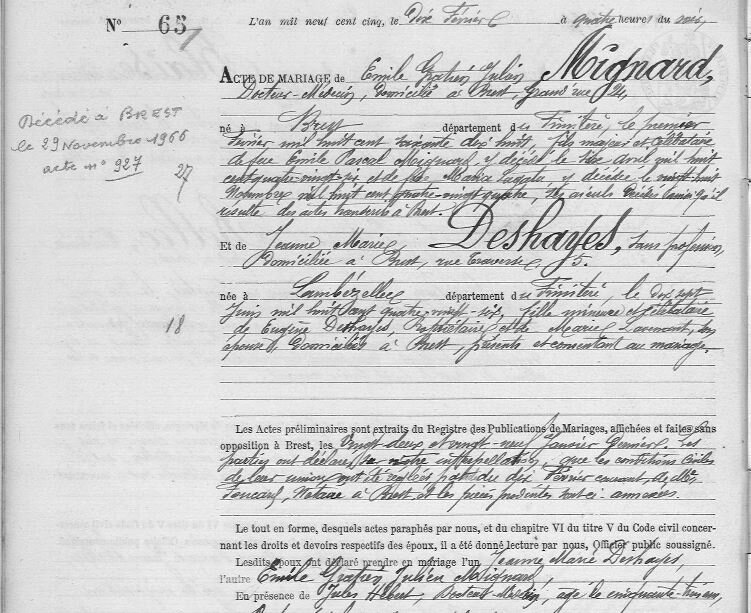 N° 65
L'an mil neuf cent cinq, le Dix Février à quatre heures du soir,
ACTE DE MARIAGE de Emile Gratien Julien Mignard,
Docteur-Médecin, Domicilié à Brest, Grand rue 24,
né à Brest département du Finistère, le premier
Février mil huit cent soixante dix huit, fils majeur et célibataire
de feu Emile Pascal Mignard y décédé le Avril mil huit
cent quatre-vingt-six et de feue Maria y décédée le vingt-huit
Novembre mil huit cent quatre-vingt quatre, Les aïeuls décédés ainsi qu'il
résulte des actes transcrits à Brest.
Et de Jeanne Marie Deshayes, sans profession,
Domiciliée à Brest, rue Traverse 5.
née à Lambézellec département du Finistère, le dix sept
Juin mil huit cent quatre-vingt-six, fille mineure et célibataire
de Eugène Deshayes, Propriétaire et de Marie son
épouse, Domiciliés à Brest, présents et consentant au mariage.
Décédé à BREST
le 29 Novembre 1966
acte n° 927
27
18
Les Actes préliminaires sont extraits du Registre des Publications de Mariages, affichées et faites sans
opposition à Brest, les Vingt-deux et vingt-neuf Janvier dernier. Les
parties ont déclaré sur notre interpellation, que les conditions civiles
de leur union ont été réglées par acte du dix Février courant, de
Notaire à Brest et les pièces présentées sont ci-annexées.
Le tout en forme, desquels actes paraphés par nous, et du chapitre VI du titre V du Code civil concer-
nant les droits et devoirs respectifs des époux, il a été donné lecture par nous, Officier public soussigné.
Lesdits époux ont déclaré prendre en mariage l'un Jeanne Marie Deshayes
l'autre Emile Gratien Julien Mignard,
En présence de Jules Hébert, Docteur-Médecin, âgé de cinquante-trois ans,